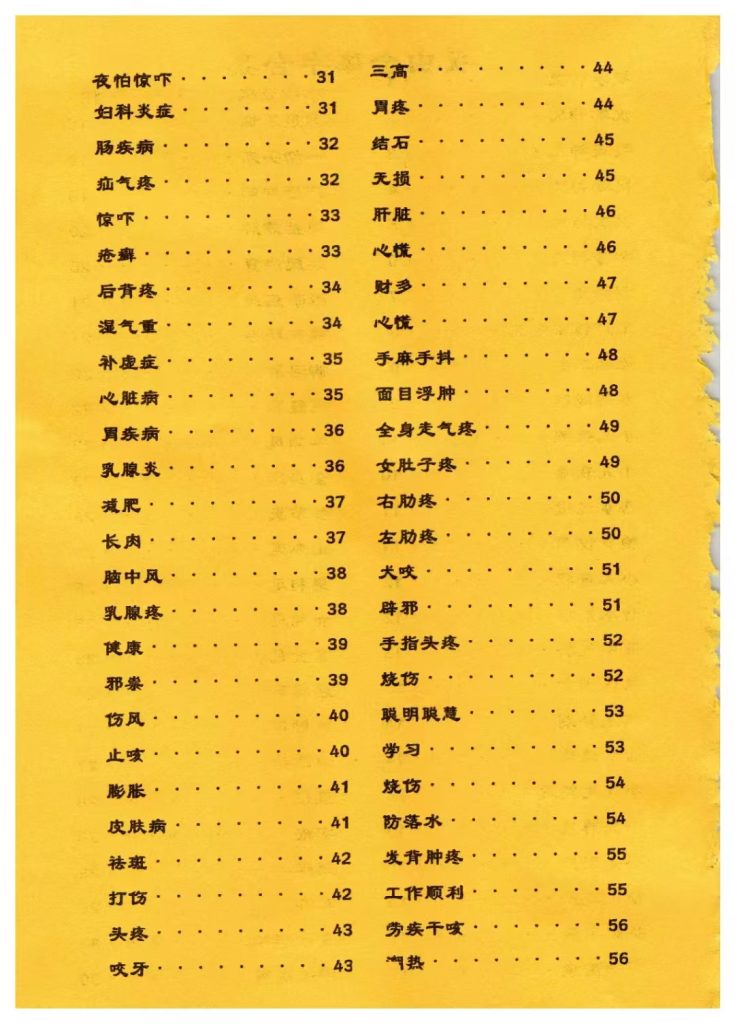 夜怕惊吓········31
妇科炎症········31
肠疾病········32
疝气疼········32
惊吓·········33
疮癣·········33
后背疼········34
湿气重········34
补虚症········35
心脏病········35
胃疾病········36
乳腺炎········36
减肥·········37
长肉·········37
脑中风········38
乳腺疼········38
健康·········39
邪祟·········39
伤风·········40
止咳·········40
膨胀·········41
皮肤病········41
祛斑·········42
打伤·········42
头疼·········43
咬牙·········43
三高·········44
胃疼·········44
结石·········45
无损·········45
肝脏·········46
心慌·········46
财多·········47
心慌·········47
手麻手抖·······48
面目浮肿·······48
全身走气疼······49
女肚子疼·······49
右肋疼········50
左肋疼········50
犬咬·········51
辟邪·········51
手指头疼·······52
烧伤·········52
聪明聪慧·······53
学习·········53
烧伤·········54
防落水········54
发背肿疼·······55
工作顺利·······55
劳疾干咳·······56
潮热·········56